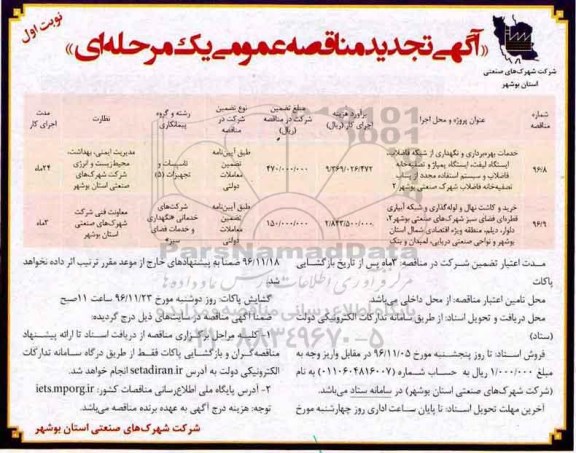 نوبت اول
«آگهی تجدید مناقصه عمومی یک مرحله‌ای»
شرکت شهرک‌های صنعتی
استان بوشهر
شماره مناقصه
عنوان پروژه و محل اجرا
برآورد هزینه اجرای کار (ریال)
مبلغ تضمین شرکت در مناقصه (ریال)
نوع تضمین شرکت در مناقصه
رشته و گروه پیمانکاری
نظارت
مدت اجرای کار
۹۶/۸
خدمات بهره‌برداری و نگهداری از شبکه فاضلاب،
ایستگاه لیفت، ایستگاه پمپاژ و تصفیه‌خانه
فاضلاب و سیستم استفاده مجدد از پساب
تصفیه‌خانه فاضلاب شهرک صنعتی بوشهر ۲
۹/۳۶۹/۰۲۶/۴۷۲
۴۷۰/۰۰۰/۰۰۰
طبق آیین‌نامه تضمین معاملات دولتی
تاسیسات و تجهیزات (۵)
مدیریت ایمنی، بهداشت، محیط‌زیست و انرژی شرکت شهرک‌های صنعتی استان بوشهر
۲۴ماه
۹۶/۹
خرید و کاشت نهال و لوله‌گذاری و شبکه آبیاری
قطره‌ای فضای سبز شهرک‌های صنعتی بوشهر۲،
دلوار، دیلم، منطقه ویژه اقتصادی شمال استان
بوشهر و نواحی صنعتی دریایی، لمیدان و بنک
۲/۸۴۳/۵۰۰/۰۰۰
۱۵۰/۰۰۰/۰۰۰
طبق آیین‌نامه تضمین معاملات دولتی
شرکت‌های خدماتی فنگهداری و خدمات فضای سبز»
معاونت فنی شرکت شهرک‌های صنعتی استان بوشهر
۳ماه
مدت اعتبار تضمین شرکت در مناقصه: ۳ماه پس از تاریخ بازگشایی
پاکات
محل تامین اعتبار مناقصه: از محل داخلی می‌باشد.
محل دریافت و تحویل اسناد: از طریق سامانه تدارکات الکترونیکی دولت
(ستاد)
فروش اسناد: تا روز پنجشنبه مورخ ۹۶/۱۱/۰۵ در مقابل واریز وجه به
مبلغ ۱/۰۰۰/۰۰۰ ریال به حساب شماره (۰۱۱۰۶۰۴۸۱۶۰۰۷) به نام
(شرکت شهرک‌های صنعتی استان بوشهر) در سامانه ستاد می‌باشد.
آخرین مهلت تحویل اسناد: تا پایان ساعت اداری روز چهارشنبه مورخ
۹۶/۱۱/۱۸ ضمنا به پیشنهادهای خارج از موعد مقرر ترتیب اثر داده نخواهد
شد
گشایش پاکات: روز دوشنبه مورخ ۹۶/۱۱/۲۳ ساعت ۱۱صبح
ضمنا آگهی مناقصه در سایت‌های ذیل درج گردیده:
۱- کلیه مراحل برگزاری مناقصه از دریافت اسناد تا ارائه پیشنهاد
مناقصه‌گران و بازگشایی پاکات فقط از طریق درگاه سامانه تدارکات
الکترونیکی دولت به آدرس setadiran.ir انجام خواهد شد.
۲- آدرس پایگاه ملی اطلاع‌رسانی مناقصات کشور: iets.mporg.ir
توجه: هزینه درج آگهی به عهده برنده مناقصه می‌باشد.
شرکت شهرک‌های صنعتی استان بوشهر
ParsNamadData
۰۲۱-۸۸۳۴۹۶۷۰-۵